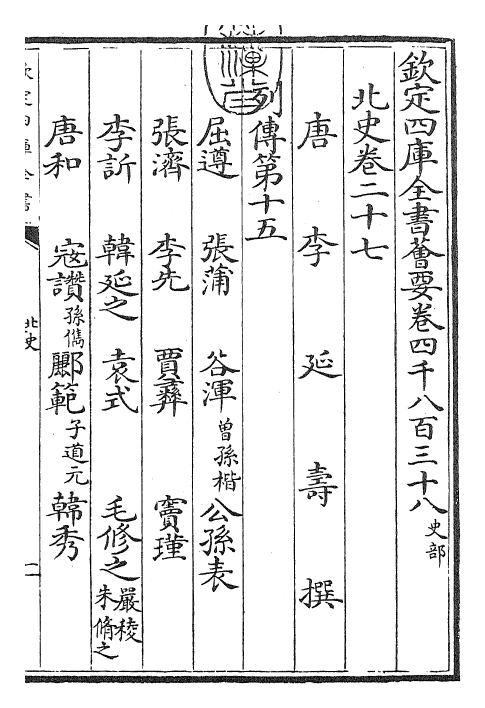 欽定四庫全書薈要卷四千八百三十八史部
北史卷二十七
唐李延壽撰
列傳第十五
屈遵 張蒲 谷渾曾孫楷 公孫表
張濟 李先 賈彝 竇瑾
李訢 韓延之 袁式 毛修之嚴稜 朱脩之
唐和 寇讚孫儁 酈範子道元 韓秀
北史